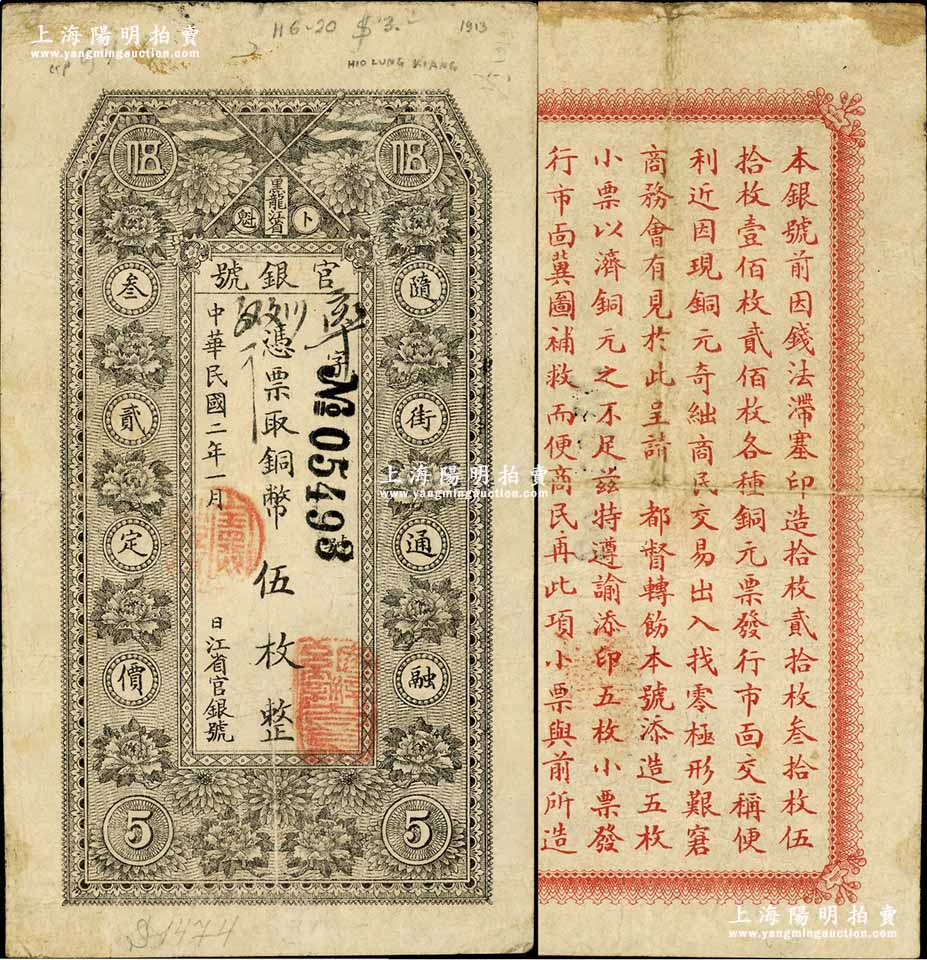 上海陽明拍賣
www.yangmingauction.com
H6-20 $3.-
1913
HIO LUNG KIANG
伍
伍
黑龍江省
卜
魁
官銀號
隨街通融
叁貳定價
字
№ 05493
憑票取銅幣伍枚整
中華民國二年一月
日江省官銀號
5
5
$1474
上海陽明拍賣
www.yangmingauction.com
本銀號前因錢法滯塞印造拾枚貳拾枚叁拾枚伍
拾枚壹佰枚貳佰枚各種銅元票發行市面交稱便
利近因現銅元奇絀商民交易出入找零極形艱窘
商務會有見於此呈請 都督轉飭本號添造五枚
小票以濟銅元之不足茲特遵諭添印五枚小票發
行市面冀圖補救而便商民再此項小票與前所造
上海陽明拍賣
www.yangmingauction.com